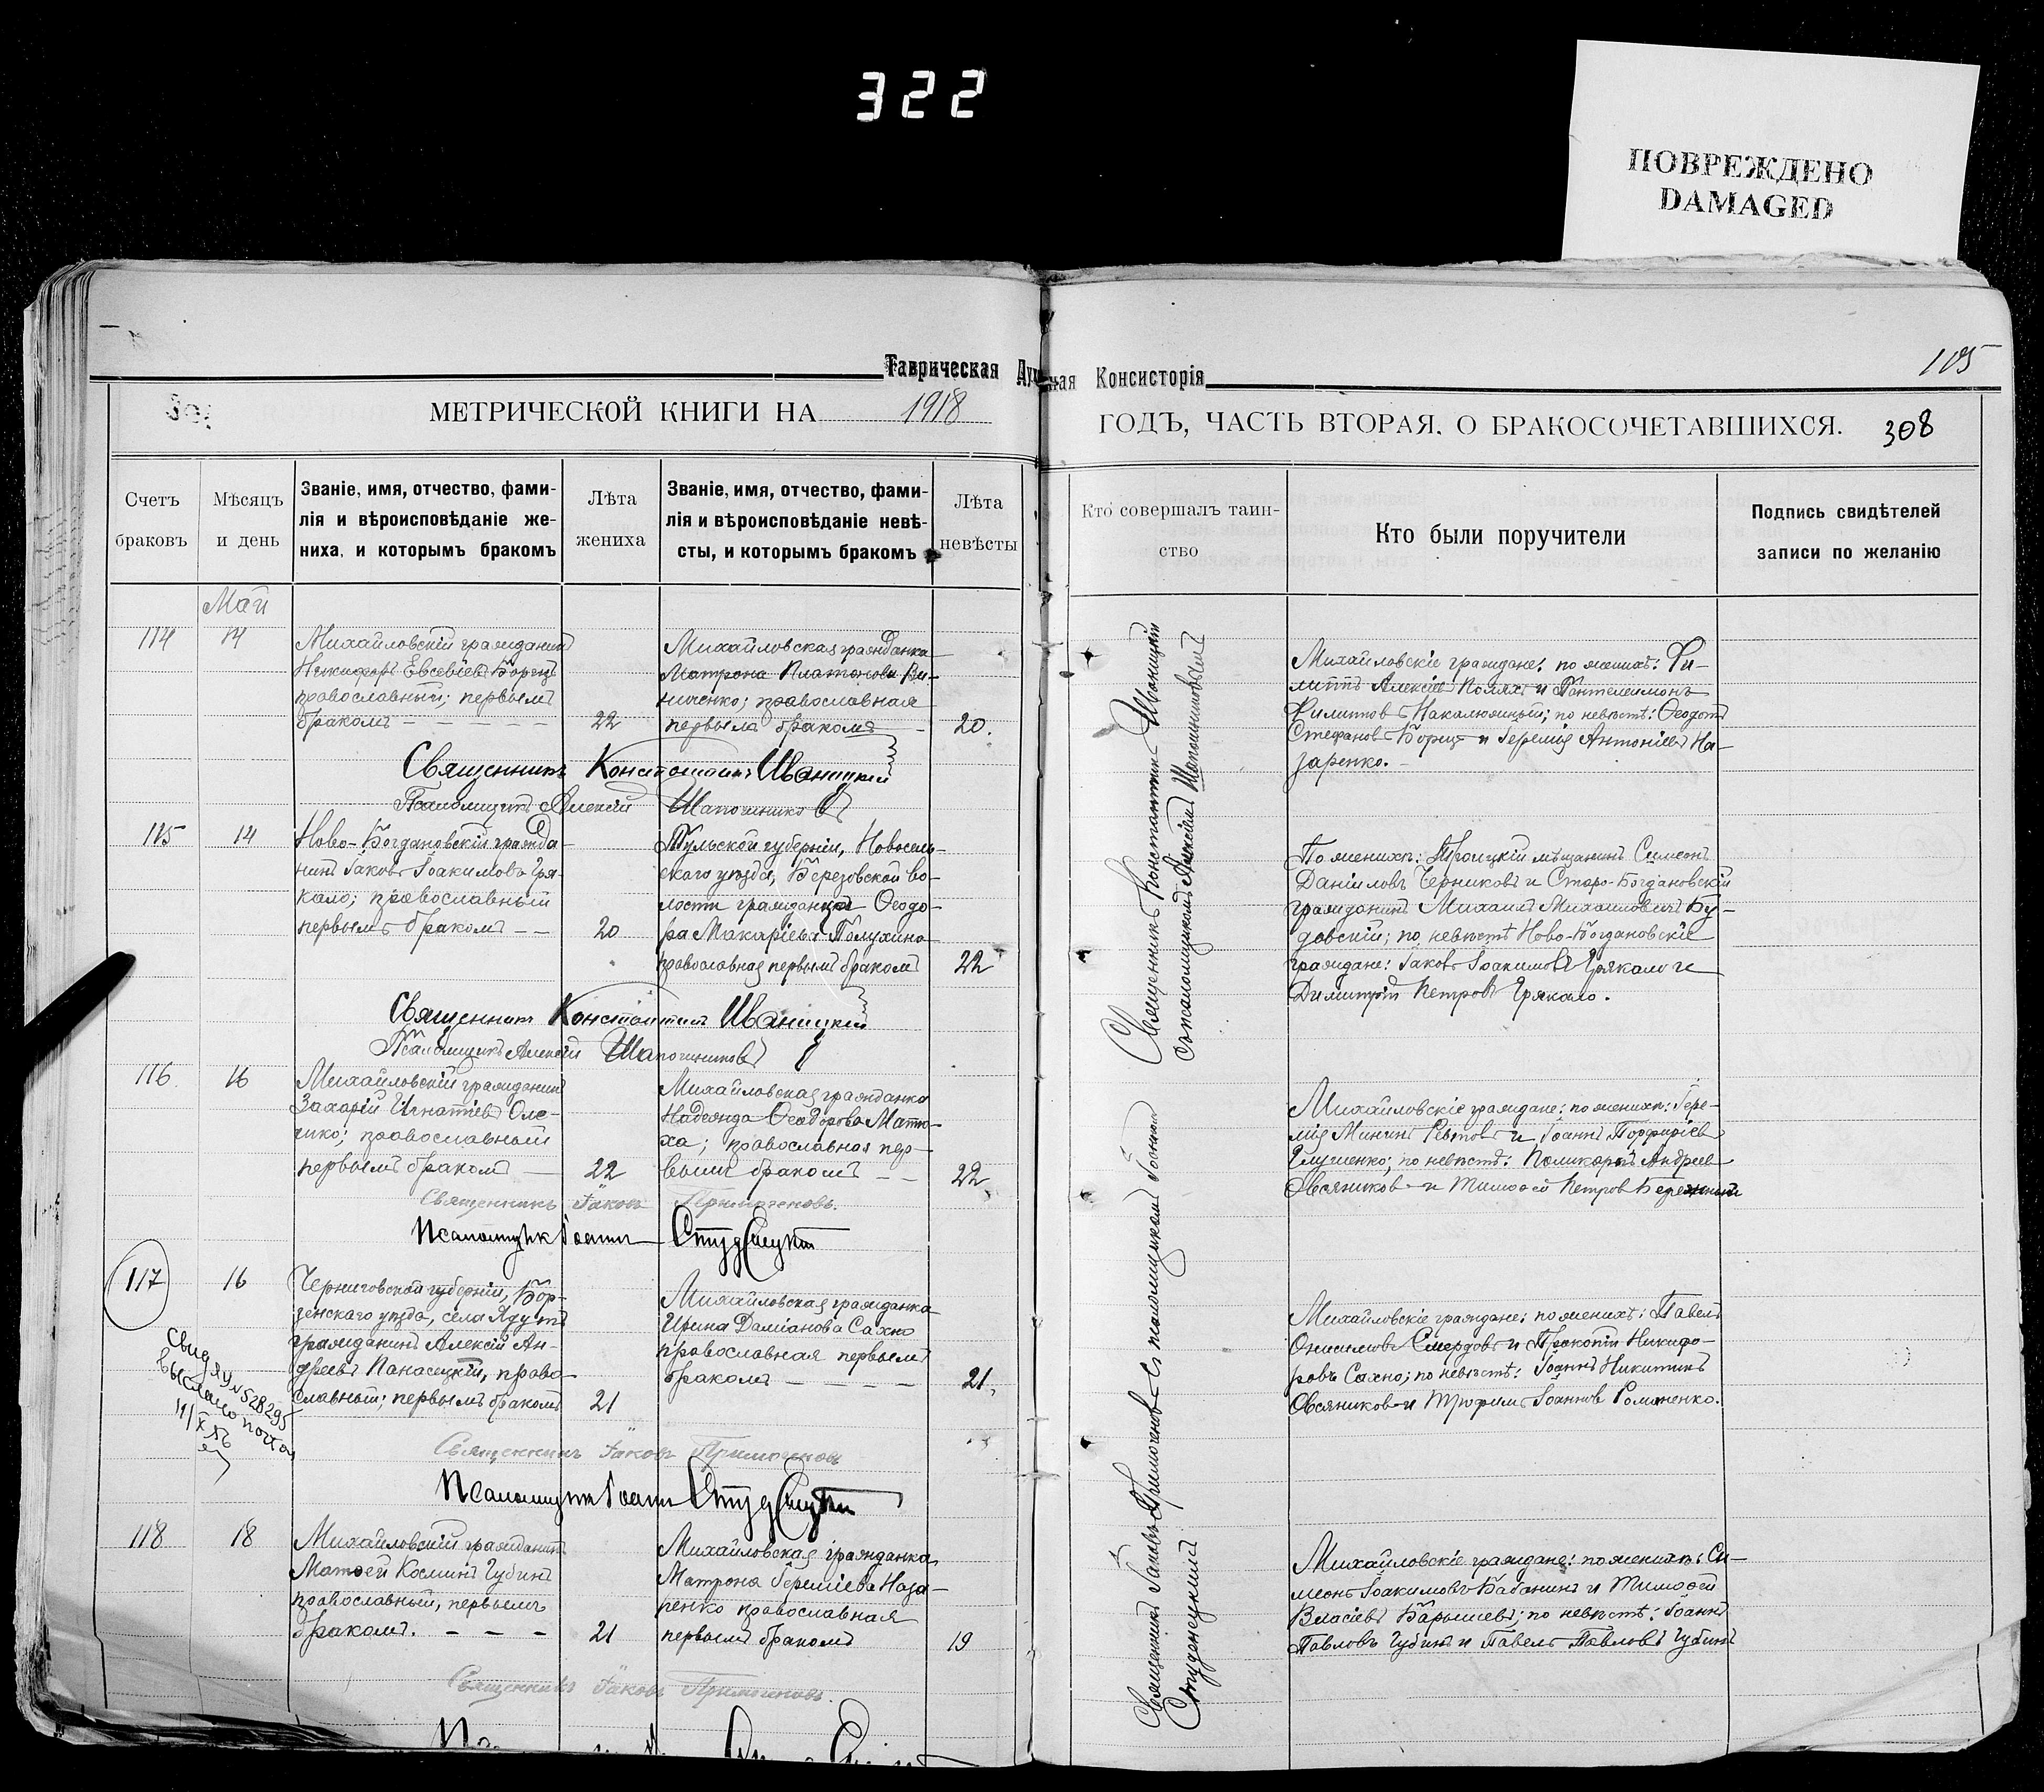 322
ПОВРЕЖДЕНО
DAMAGED
Таврическая Духовная Консисторія
105
МЕТРИЧЕСКОЙ КНИГИ НА 1918
ГОДЪ, ЧАСТЬ ВТОРАЯ, О БРАКОСОЧЕТАВШИХСЯ. 308
Счетъ
браковъ
Мѣсяцъ
и день
Званіе, имя, отчество, фами-
лія и вѣроисповѣданіе же-
ниха, и которымъ бракомъ
Лѣта
жениха
Званіе, имя, отчество, фами-
лія и вѣроисповѣданіе невѣ-
сты, и которымъ бракомъ
Лѣта
невѣсты
Кто совершалъ таин-
ство
Кто были поручители
Подпись свидѣтелей
записи по желанію
Май
114
14
Михайловскій гражданинъ
Никифоръ Евсевіевъ Борецъ
православный; первымъ
бракомъ
22
Михайловская гражданка
Матрона Платонова Ви-
ниченко; православная
первымъ бракомъ
20.
Священникъ Константинъ Иваницкій
Псаломщикъ Алексій Шапошниковъ
Михайловскіе граждане: по женихѣ: Фи-
липпъ Алексіевъ Поляхъ и Пантелеимонъ
Филипповъ Накалюжный; по невѣстѣ: Ѳеодотъ
Стефановъ Борецъ и Іеремія Антоніевъ На-
заренко.
115
14
Ново-Богдановскій гражда-
нинъ Іаковъ Іоакимовъ Гря-
кало; православный
первымъ бракомъ
20
Тульской губерніи, Новосиль-
скаго уѣзда, Березовской во-
лости гражданка Ѳеодо-
ра Макаріева Полухина
православная первымъ бракомъ
22
Священникъ Константинъ Иваницкій
Псаломщикъ Алексій Шапошниковъ
По женихѣ: Троицкій мѣщанинъ Симеонъ
Даніиловъ Черниковъ и Старо-Богдановскій
гражданинъ Михаилъ Михаиловичъ Бу-
довскій; по невѣстѣ Ново-Богдановскіе
граждане: Іаковъ Іоакимовъ Грякало и
Димитрій Петровъ Грякало.
Священникъ Константинъ Иваницкій
съ псаломщикомъ Алексіемъ Шапошниковымъ
116
16
Михайловскій гражданинъ
Захарій Игнатіевъ Оле-
чико; православный
первымъ бракомъ
22
Михайловская гражданка
Надежда Ѳеодорова Матю-
ха; православная пер-
вымъ бракомъ
22
Священникъ Іаковъ Примоченовъ.
Псаломщик Іоаннъ Студенецкій
Михайловскіе граждане: по женихѣ: Іере-
мія Мининъ Ревтовъ и Іоаннъ Порфиріевъ
Глущенко; по невѣстѣ: Поликарпъ Андреевъ
Овсяниковъ и Тимоѳей Петровъ Бережный
117
16
Черниговской губерніи, Бор-
зенскаго уѣзда, села Ядутъ
гражданинъ Алексій Ан-
дреевъ Панасецкій, право-
славный; первымъ бракомъ
21
Михайловская гражданка
Ирина Даміанова Сахно
православная первымъ
бракомъ
21.
Свид ЯУ № 528295
выслано почтой
11/X
Священникъ Іаковъ Примоченовъ
Псаломщикъ Іоаннъ Студенецкій
Михайловскіе граждане: по женихѣ: Павелъ
Онисимовъ Смердовъ и Прокопій Никифо-
ровъ Сахно; по невѣстѣ: Іоаннъ Никитинъ
Овсяниковъ и Трофимъ Іоанновъ Романенко.
118
18
Михайловскій гражданинъ
Матѳей Косминъ Губинъ
православный, первымъ
бракомъ.
21
Михайловская гражданка
Матрона Іереміева Наза-
ренко православная
первымъ бракомъ
19
Священникъ Іаковъ Примоченовъ.
Михайловскіе граждане: по женихѣ: Си-
меонъ Іоакимовъ Бабанинъ и Тимоѳей
Власіевъ Барышевъ; по невѣстѣ: Іоаннъ
Павловъ Губинъ и Павелъ Павловъ Губинъ
Священникъ Іаковъ Примоченовъ съ псаломщикомъ Іоанномъ
Студенецкимъ